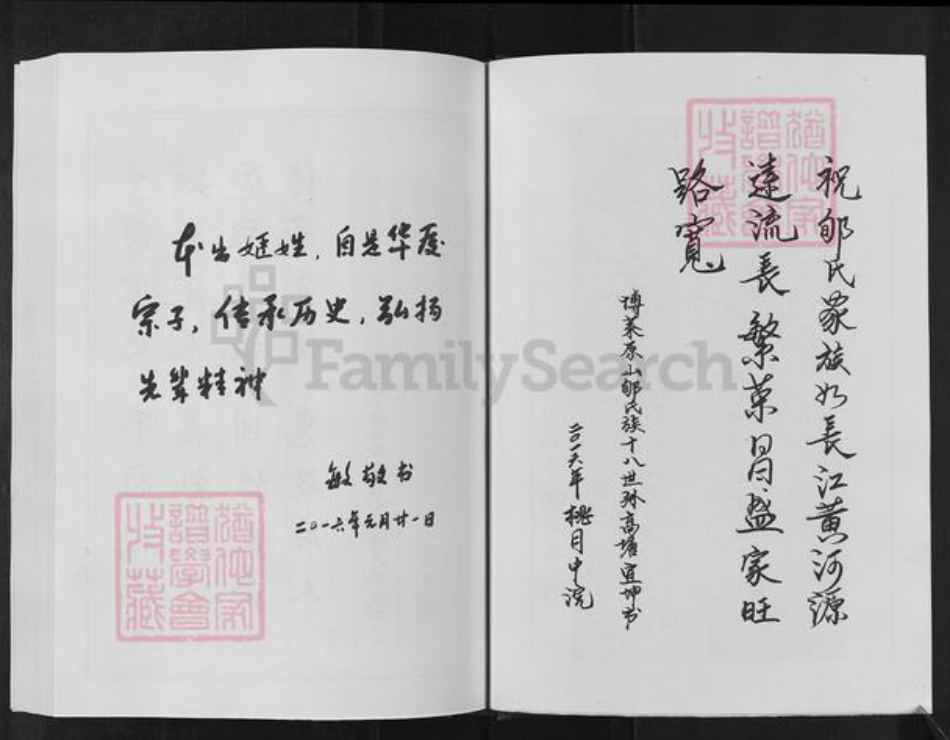 祝郇氏家族如長江黄河源
遠流長繁荣昌盛家旺
路寬
博莱原山郇氏族十八世孙高塘宣坤书
二〇一六年桃月中浣
本出姬姓，自是华夏
宗子，传承历史，弘扬
先辈精神
敏敬书
二〇一六年元月廿一日
猶他家
譜學會
收藏
猶他家
譜學會
收藏
FamilySearch